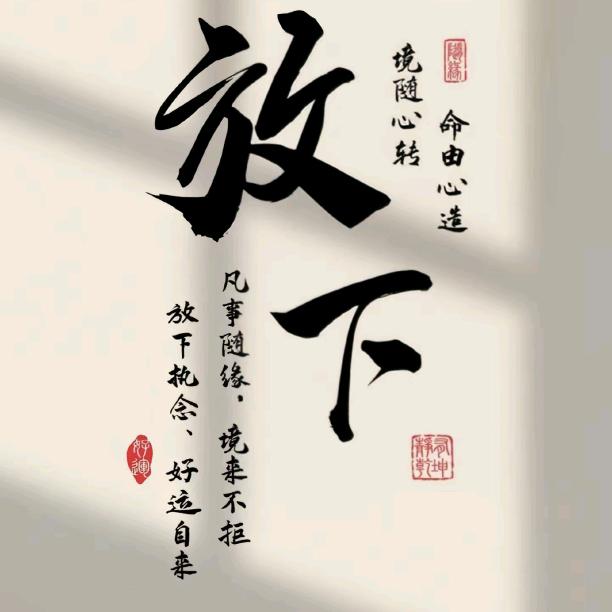 随缘
命由心造
境随心转
放下
凡事随缘,境来不拒
放下执念、好运自来
静有乾坤
好運